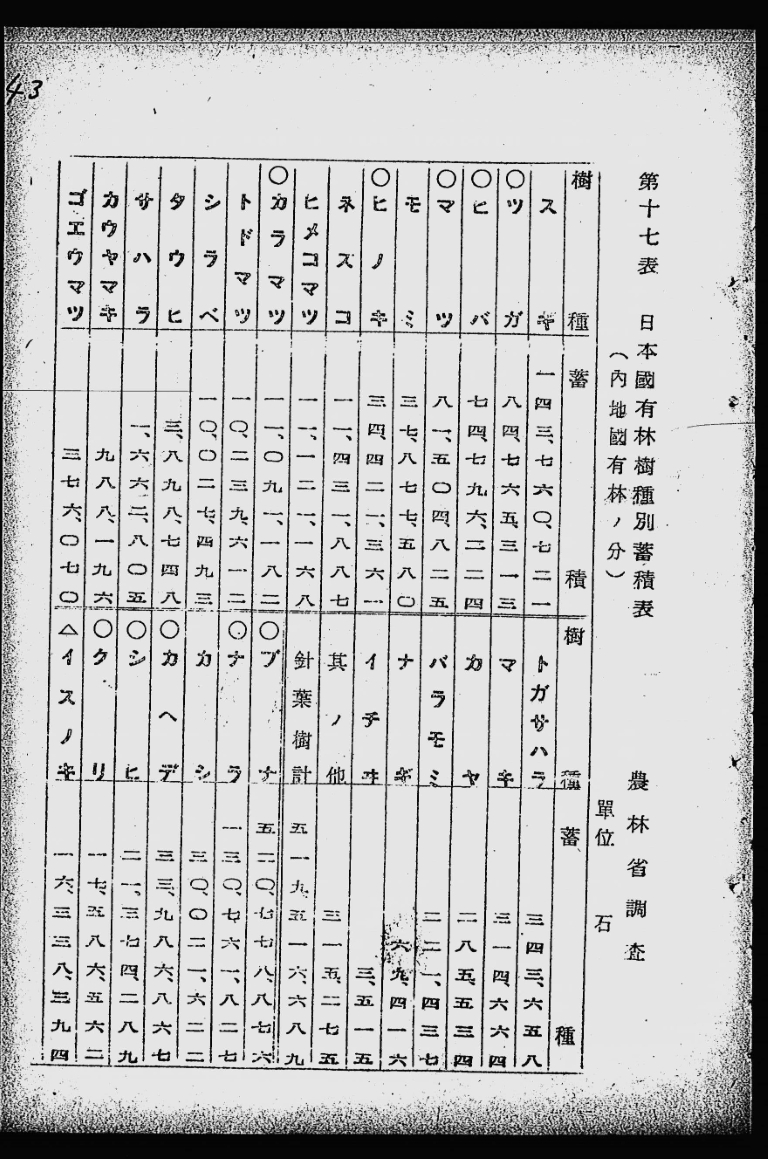 43
第十七表　日本國有林樹種別蓄積表　農林省調査
（内地國有林ノ分）　單位　石
樹種　蓄積
スギ　一四三、七六〇、七二一
○ツガ　八四、七六五、三一三
○ヒバ　七四、七九六、二二四
○マツ　八一、五〇四、八二五
モミ　三七、八七七、五八〇
○ヒノキ　三四、四二一、三六一
ネズコ　一一、四三一、八八七
ヒメコマツ　一一、一二一、一六八
○カラマツ　一一、〇九一、一八二
トドマツ　一〇、二三九、六一二
シラベ　一〇、〇二七、四九三
タウヒ　三、八九八、七四八
サハラ　一、六六二、八〇五
カウヤマキ　九八八、一九六
ゴエウマツ　三七六、〇七〇
樹種　蓄種
トガサハラ　三四三、六五八
マキ　三一四、六六四
カヤ　二八五、五三四
バラモミ　二二一、四三七
ナギ　六九、四一六
イチヰ　三、五一五
其ノ他　三一五、二七五
針葉樹計　五一九、五一六、六八九
○ブナ　五二〇、七七八、八七六
○ナラ　一三〇、七六一、八二七
カシ　三〇、〇二一、六二二
○カヘデ　三三、九八六、八六七
○シヒ　二一、三七四、二八九
○クリ　一七、五八六、五六二
△イスノキ　一六、三三八、三九四